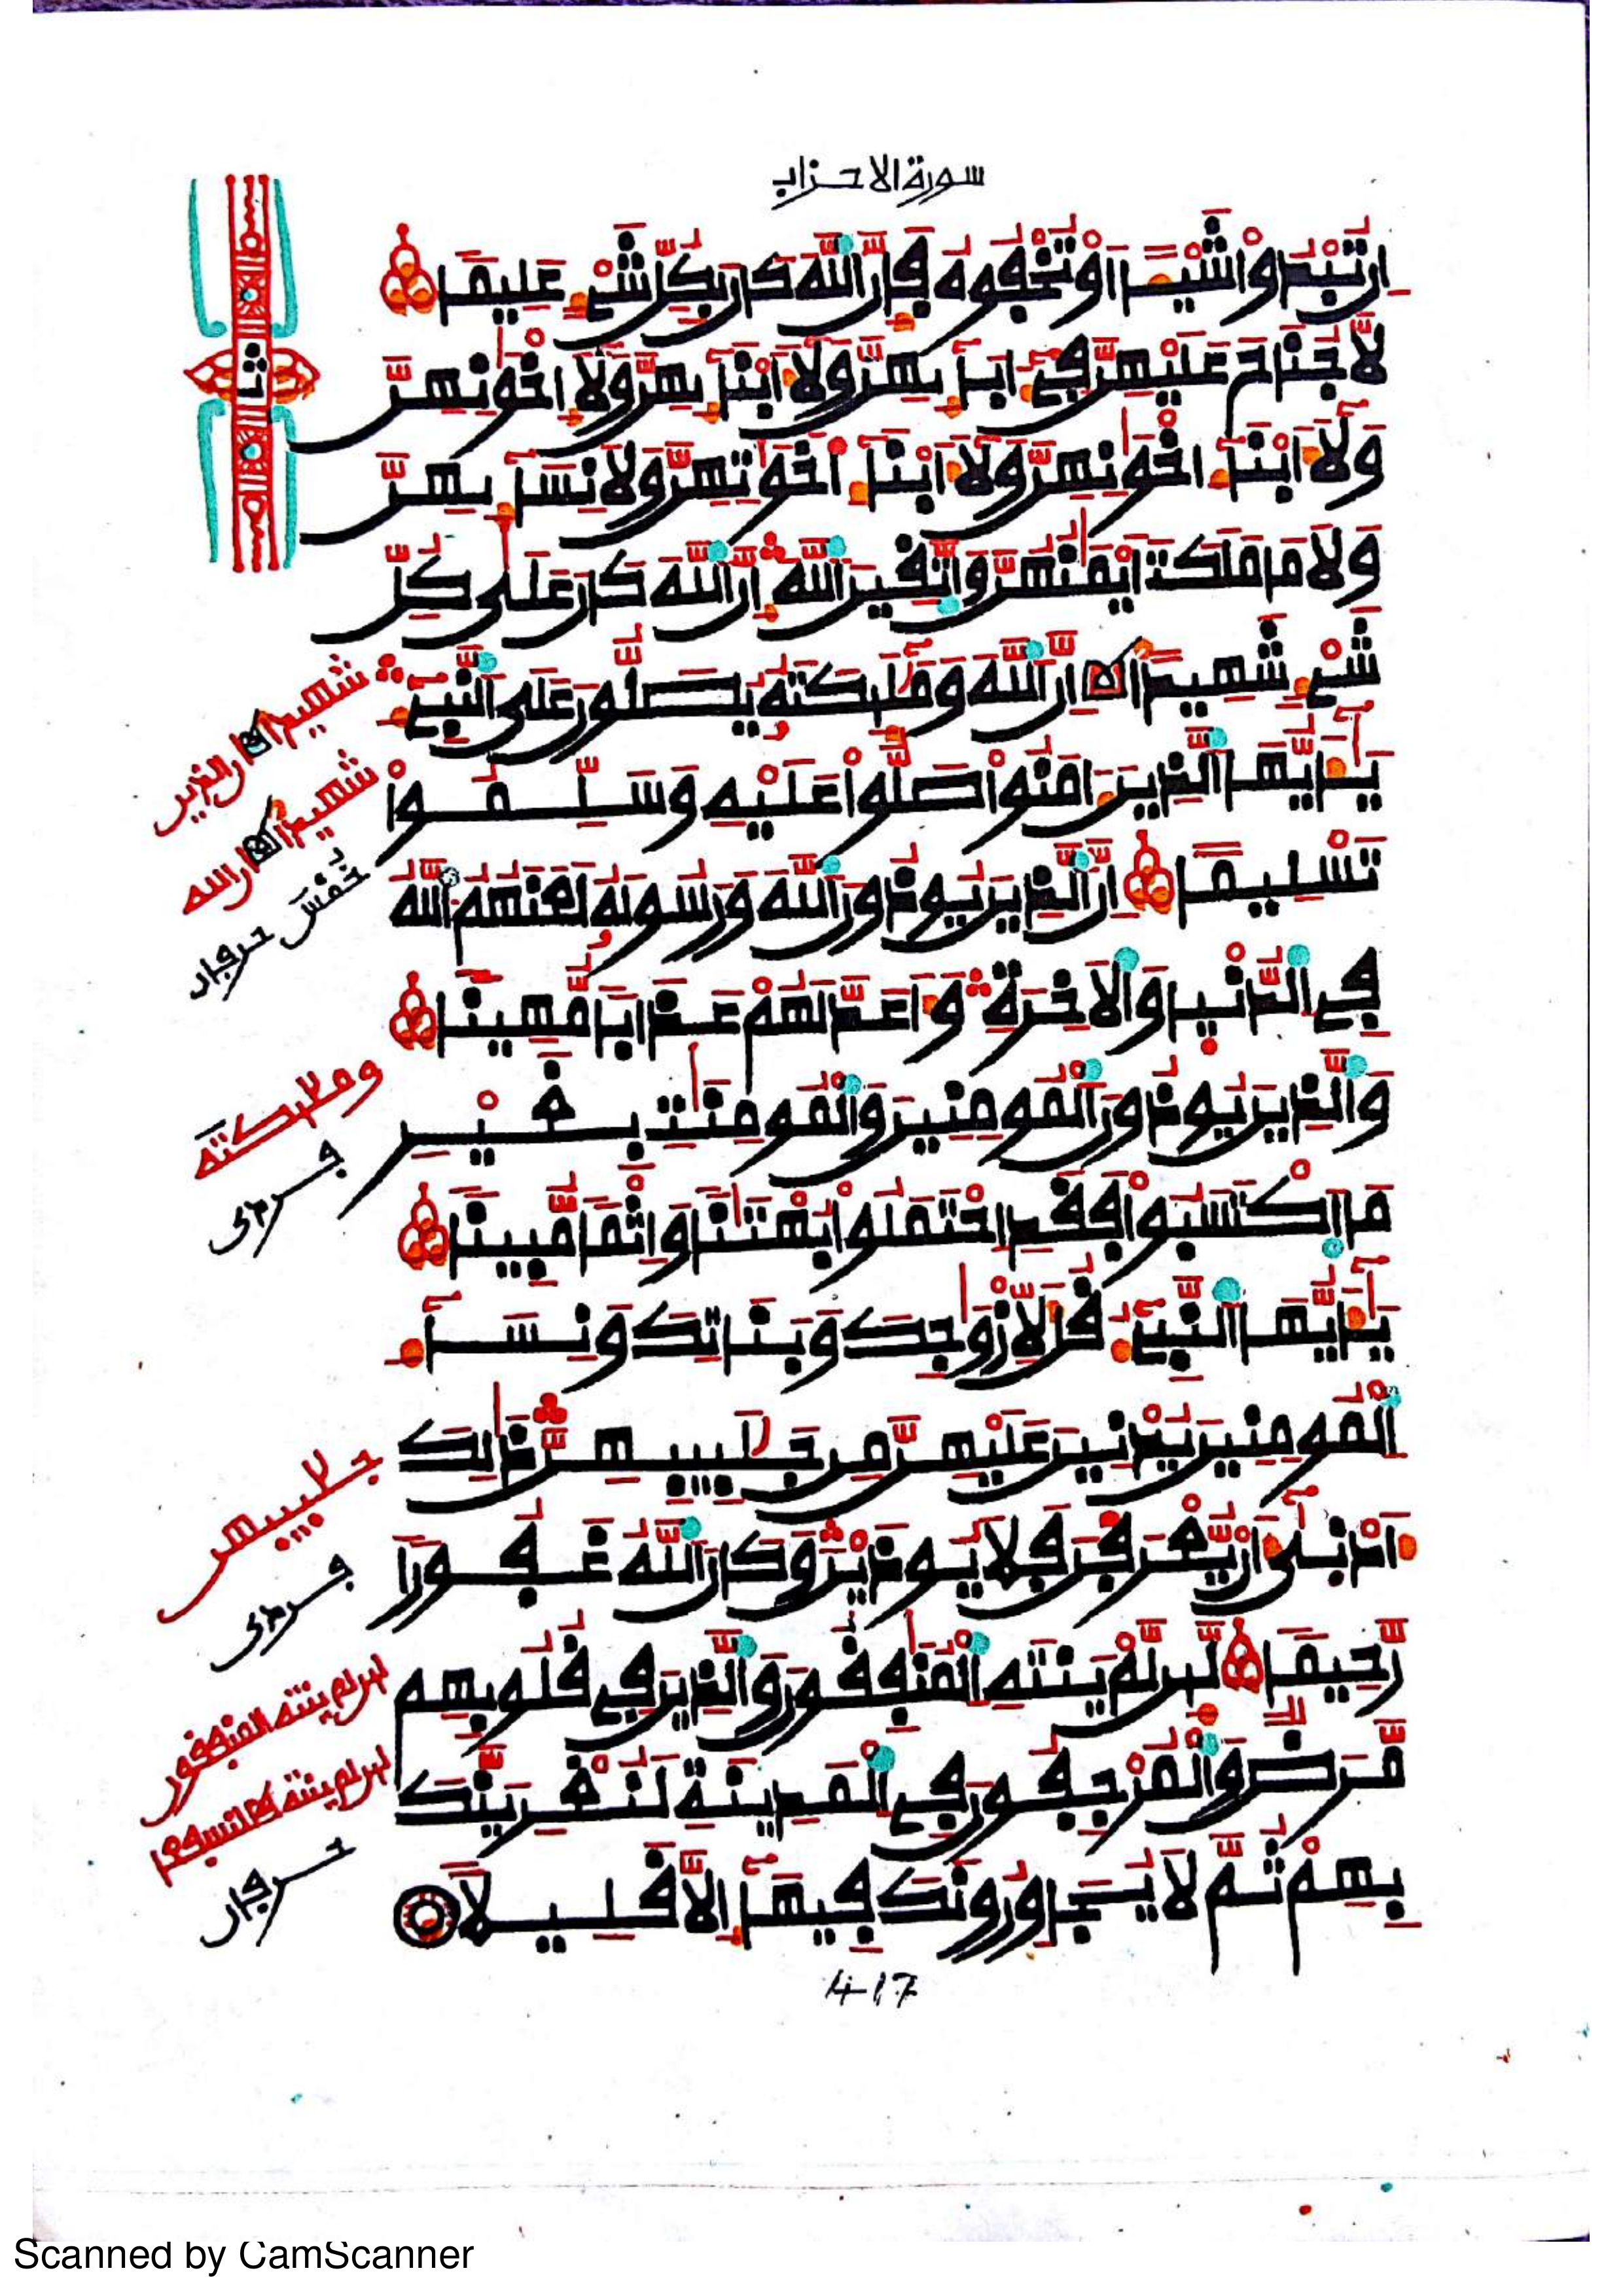 سورة الاحزاب
إِن تُبْدُواْ شَيْـًٔا أَوْ تُخْفُوهُ فَإِنَّ ٱللَّهَ كَانَ بِكُلِّ شَىْءٍ عَلِيمًا
لَّا جُنَاحَ عَلَيْهِنَّ فِىٓ ءَابَآئِهِنَّ وَلَآ أَبْنَآئِهِنَّ وَلَآ إِخْوَٰنِهِنَّ
وَلَآ أَبْنَآءِ اِخْوَٰنِهِنَّ وَلَآ أَبْنَآءِ اَخَوَٰتِهِنَّ وَلَا نِسَآئِهِنَّ
وَلَا مَا مَلَكَتْ أَيْمَٰنُهُنَّ وَٱتَّقِينَ ٱللَّهَ إِنَّ ٱللَّهَ كَانَ عَلَىٰ كُلِّ
شَىْءٍ شَهِيدًا إِنَّ ٱللَّهَ وَمَلَٰٓئِكَتَهُۥ يُصَلُّونَ عَلَى ٱلنَّبِىِٕ
يَٰٓأَيُّهَا ٱلَّذِينَ ءَامَنُواْ صَلُّواْ عَلَيْهِ وَسَلِّمُواْ
تَسْلِيمًا إِنَّ ٱلَّذِينَ يُوذُونَ ٱللَّهَ وَرَسُولَهُۥ لَعَنَهُمُ ٱللَّهُ
فِى ٱلدُّنْيَا وَٱلَاخِرَةِ وَأَعَدَّ لَهُمْ عَذَابًا مُّهِينًا
وَٱلَّذِينَ يُوذُونَ ٱلْمُومِنِينَ وَٱلْمُومِنَٰتِ بِغَيْرِ
مَا ٱكْتَسَبُواْ فَقَدِ ٱحْتَمَلُواْ بُهْتَٰنًا وَإِثْمًا مُّبِينًا
يَٰٓأَيُّهَا ٱلنَّبِىُٔ قُل لِّأَزْوَٰجِكَ وَبَنَاتِكَ وَنِسَآءِ
ٱلْمُومِنِينَ يُدْنِينَ عَلَيْهِنَّ مِن جَلَٰبِيبِهِنَّ ذَٰلِكَ
أَدْنَىٰٓ أَنْ يُّعْرَفْنَ فَلَا يُوذَيْنَ وَكَانَ ٱللَّهُ غَفُورًا
رَّحِيمًا لَّئِن لَّمْ يَنتَهِ ٱلْمُنَٰفِقُونَ وَٱلَّذِينَ فِى قُلُوبِهِم
مَّرَضٌ وَٱلْمُرْجِفُونَ فِى ٱلْمَدِينَةِ لَنُغْرِيَنَّكَ
بِهِمْ ثُمَّ لَا يُجَاوِرُونَكَ فِيهَآ إِلَّا قَلِيلًا
417
Scanned by CamScanner